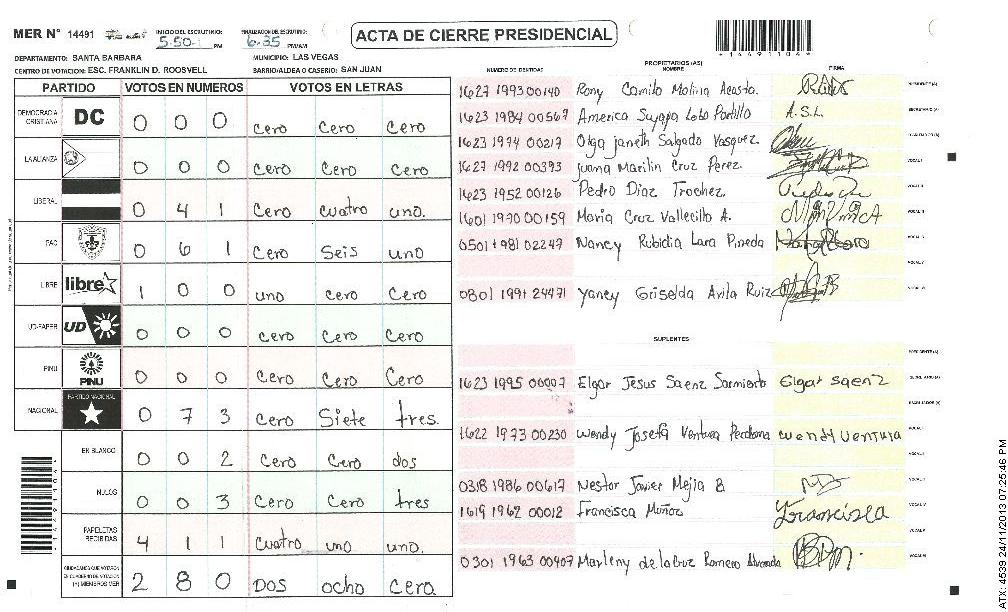 MER N° 14491
INICIO DEL ESCRUTINIO: 5:50 PM
FINALIZACION DEL ESCRUTINIO: 6:35 PM/AM
ACTA DE CIERRE PRESIDENCIAL
DEPARTAMENTO: SANTA BARBARA
MUNICIPIO: LAS VEGAS
CENTRO DE VOTACION: ESC. FRANKLIN D. ROOSVELL
BARRIO/ALDEA O CASERIO: SAN JUAN
PARTIDO VOTOS EN NUMEROS VOTOS EN LETRAS
DEMOCRACIA CRISTIANA DC 0 0 0 cero cero cero
LA ALIANZA 0 0 0 cero cero cero
LIBERAL 0 4 1 cero cuatro uno.
PAC 0 6 1 cero seis uno
LIBRE libre 1 0 0 uno cero cero
UD-FAPER UD 0 0 0 cero cero cero
PINU PINU 0 0 0 cero cero cero
NACIONAL PARTIDO NACIONAL 0 7 3 cero siete tres.
EN BLANCO 0 0 2 cero cero dos
NULOS 0 0 3 cero cero tres
PAPELETAS RECIBIDAS 4 1 1 cuatro uno uno.
CIUDADANOS QUE VOTARON EN CUADERNO DE VOTACION (+) MIEMBROS MER 2 8 0 DOS ocho cero
NUMERO DE IDENTIDAD PROPIETARIOS (AS) NOMBRE FIRMA
1627 1993 00140 Rony Camilo Molina Acosta.
1623 1984 00567 America Suyapa Lobo Portillo A.S.L.
1623 1974 00217 Olga janeth Salgado Vasquez.
1627 1992 00393 juana Marilin Cruz Perez.
1623 1952 00126 Pedro Diaz Trochez.
1601 1970 00159 Maria Cruz Vallecillo A.
0501 1981 02247 Nancy Rubidia Lara Pineda
0801 1991 24471 Yancy Griselda Avila Ruiz
SUPLENTES
1623 1995 00007 Elgar Jesus Saenz Sarmiento Elgar saenz
1622 1973 00230 Wendy Josefa Ventura Perdomo wendy ventura
0318 1986 00617 Nestor Javier Mejia B
1619 1962 00012 Francisca Muñoz Francisca
0301 1963 00407 Marleny de la cruz Romero Alvarado
ATX: 4539 24/11/2013 07:25:46 PM